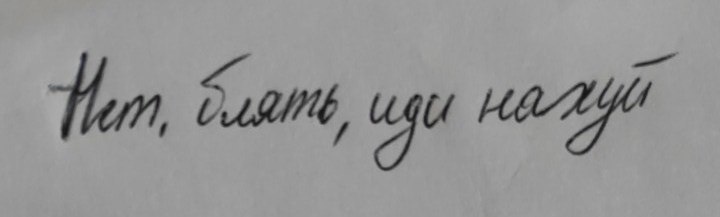 Нет, блять, иди нахуй